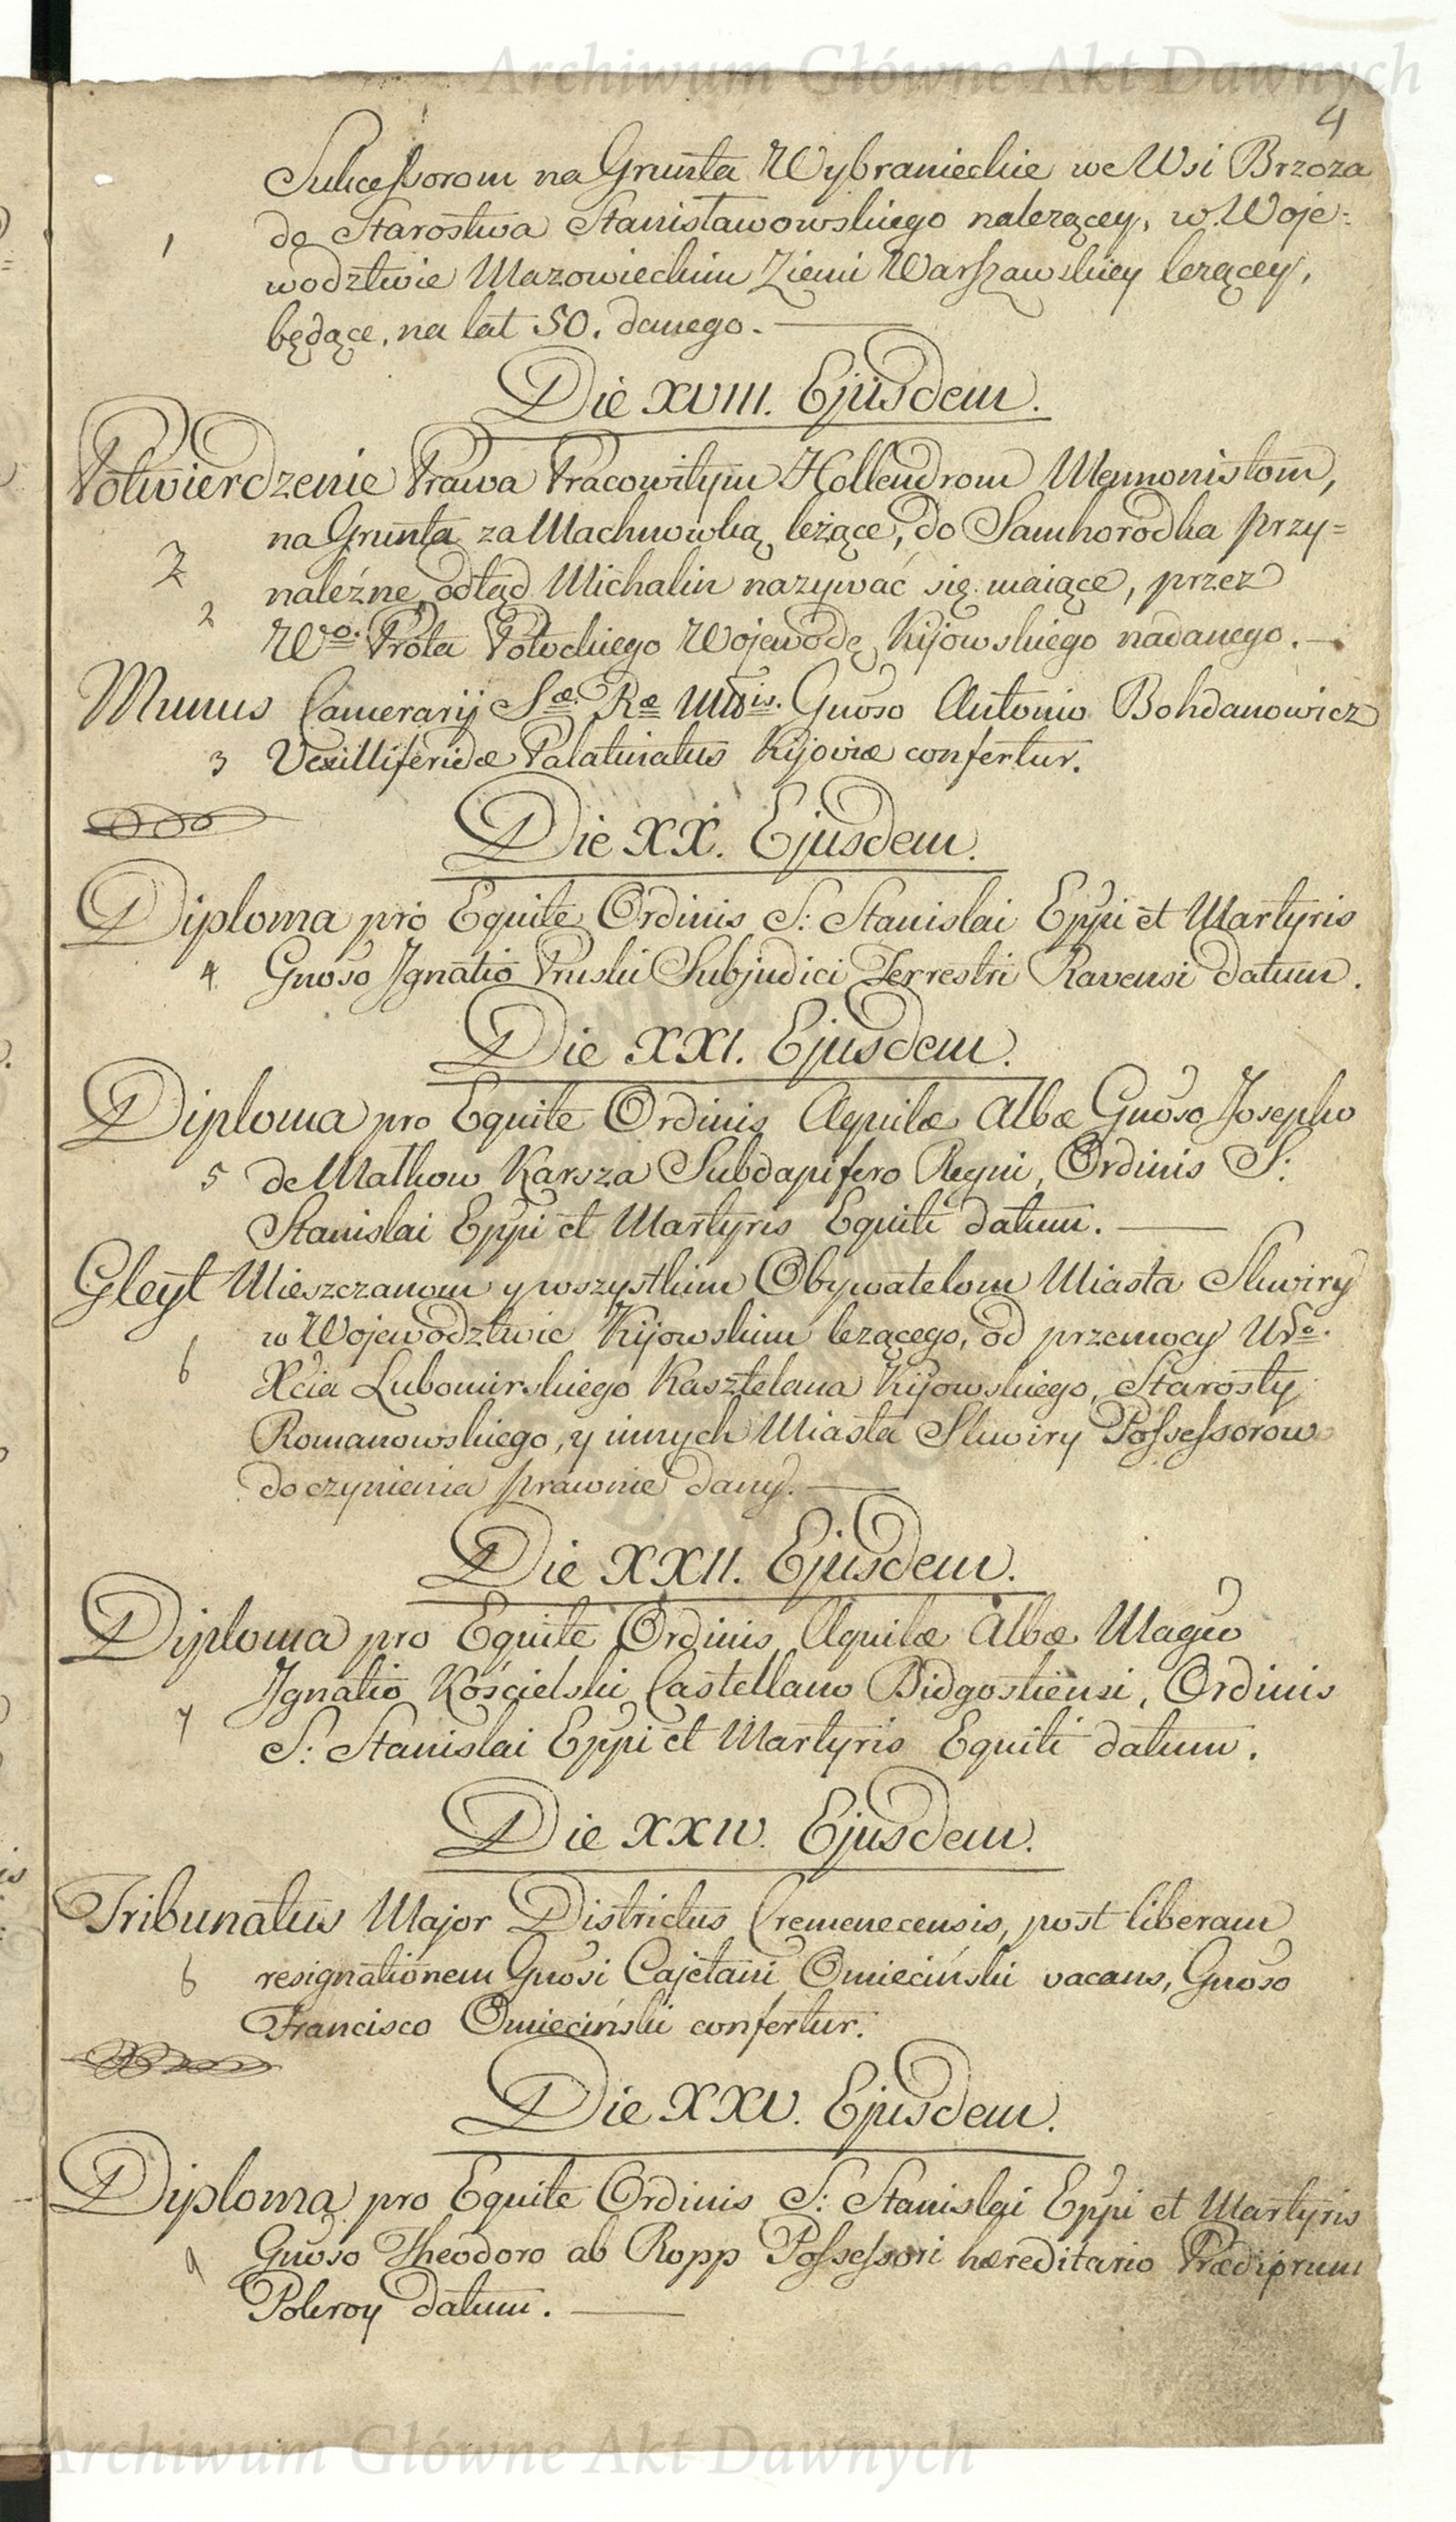 Archiwum Główne Akt Dawnych
4
Sukcessorom na Grunta Wybranieckie we Wsi Brzoza
1
do Starostwa Stanisławowskiego nalezącey, w Woje=
wodztwie Mazowieckim Ziemi Warszawskiey lezącey,
będące, na lat 50. danego.
Die XVIII. Ejusdem.
Potwierdzenie Prawa Pracowitym Hollendrom Mennonistom,
na Grunta za Machnowką leżące, do Samhorodka przy=
2
należne, odtąd Michalin nazywać się maiące, przez
2
Wo. Prota Potockiego Wojewodę Kijowskiego nadanego.
Munus Camerarij Sæ. Ræ Mtis. Gnoso Antonio Bohdanowicz
3 Vexilliferidæ Palatinatus Kijoviæ confertur.
Die XX. Ejusdem.
Diploma pro Equite Ordinis S: Stanislai Eppi et Martyris
4 Gnoso Ignatio Pruski Subjudici Terrestri Ravensi datum.
Die XXI. Ejusdem.
Diploma pro Equite Ordinis Aquilæ Albæ Gnoso Josepho
5 de Matkow Karsza Subdapifero Regni, Ordinis S:
Stanislai Eppi et Martyris Equiti datum.
Gleyt Mieszczanom y wszystkim Obywatelom Miasta Skwiry
6 w Wojewodztwie Kijowskim lezącego, od przemocy Uro.
Xcia Lubomirskiego Kasztelana Kijowskiego, Starosty
Romanowskiego, y innych Miasta Skwiry Possessorow
do czynienia prawnie dany.
Die XXII. Ejusdem.
Diploma pro Equite Ordinis Aquilæ Albæ Magco
Ignatio Kościelski Castellano Bidgostiensi, Ordinis
7
S: Stanislai Eppi et Martyris Equiti datum.
Die XXIV. Ejusdem.
Tribunatus Major Districtus Cremenecensis, post liberam
8 resignationem Gnosi Cajetani Omieciński vacans, Gnoso
Francisco Omieciński confertur.
Die XXV. Ejusdem.
Diploma pro Equite Ordinis S: Stanislai Eppi et Martyris
9 Gnoso Theodoro ab Ropp Possessori hæreditario Prædiorum
Pokroy datum.
Archiwum Główne Akt Dawnych